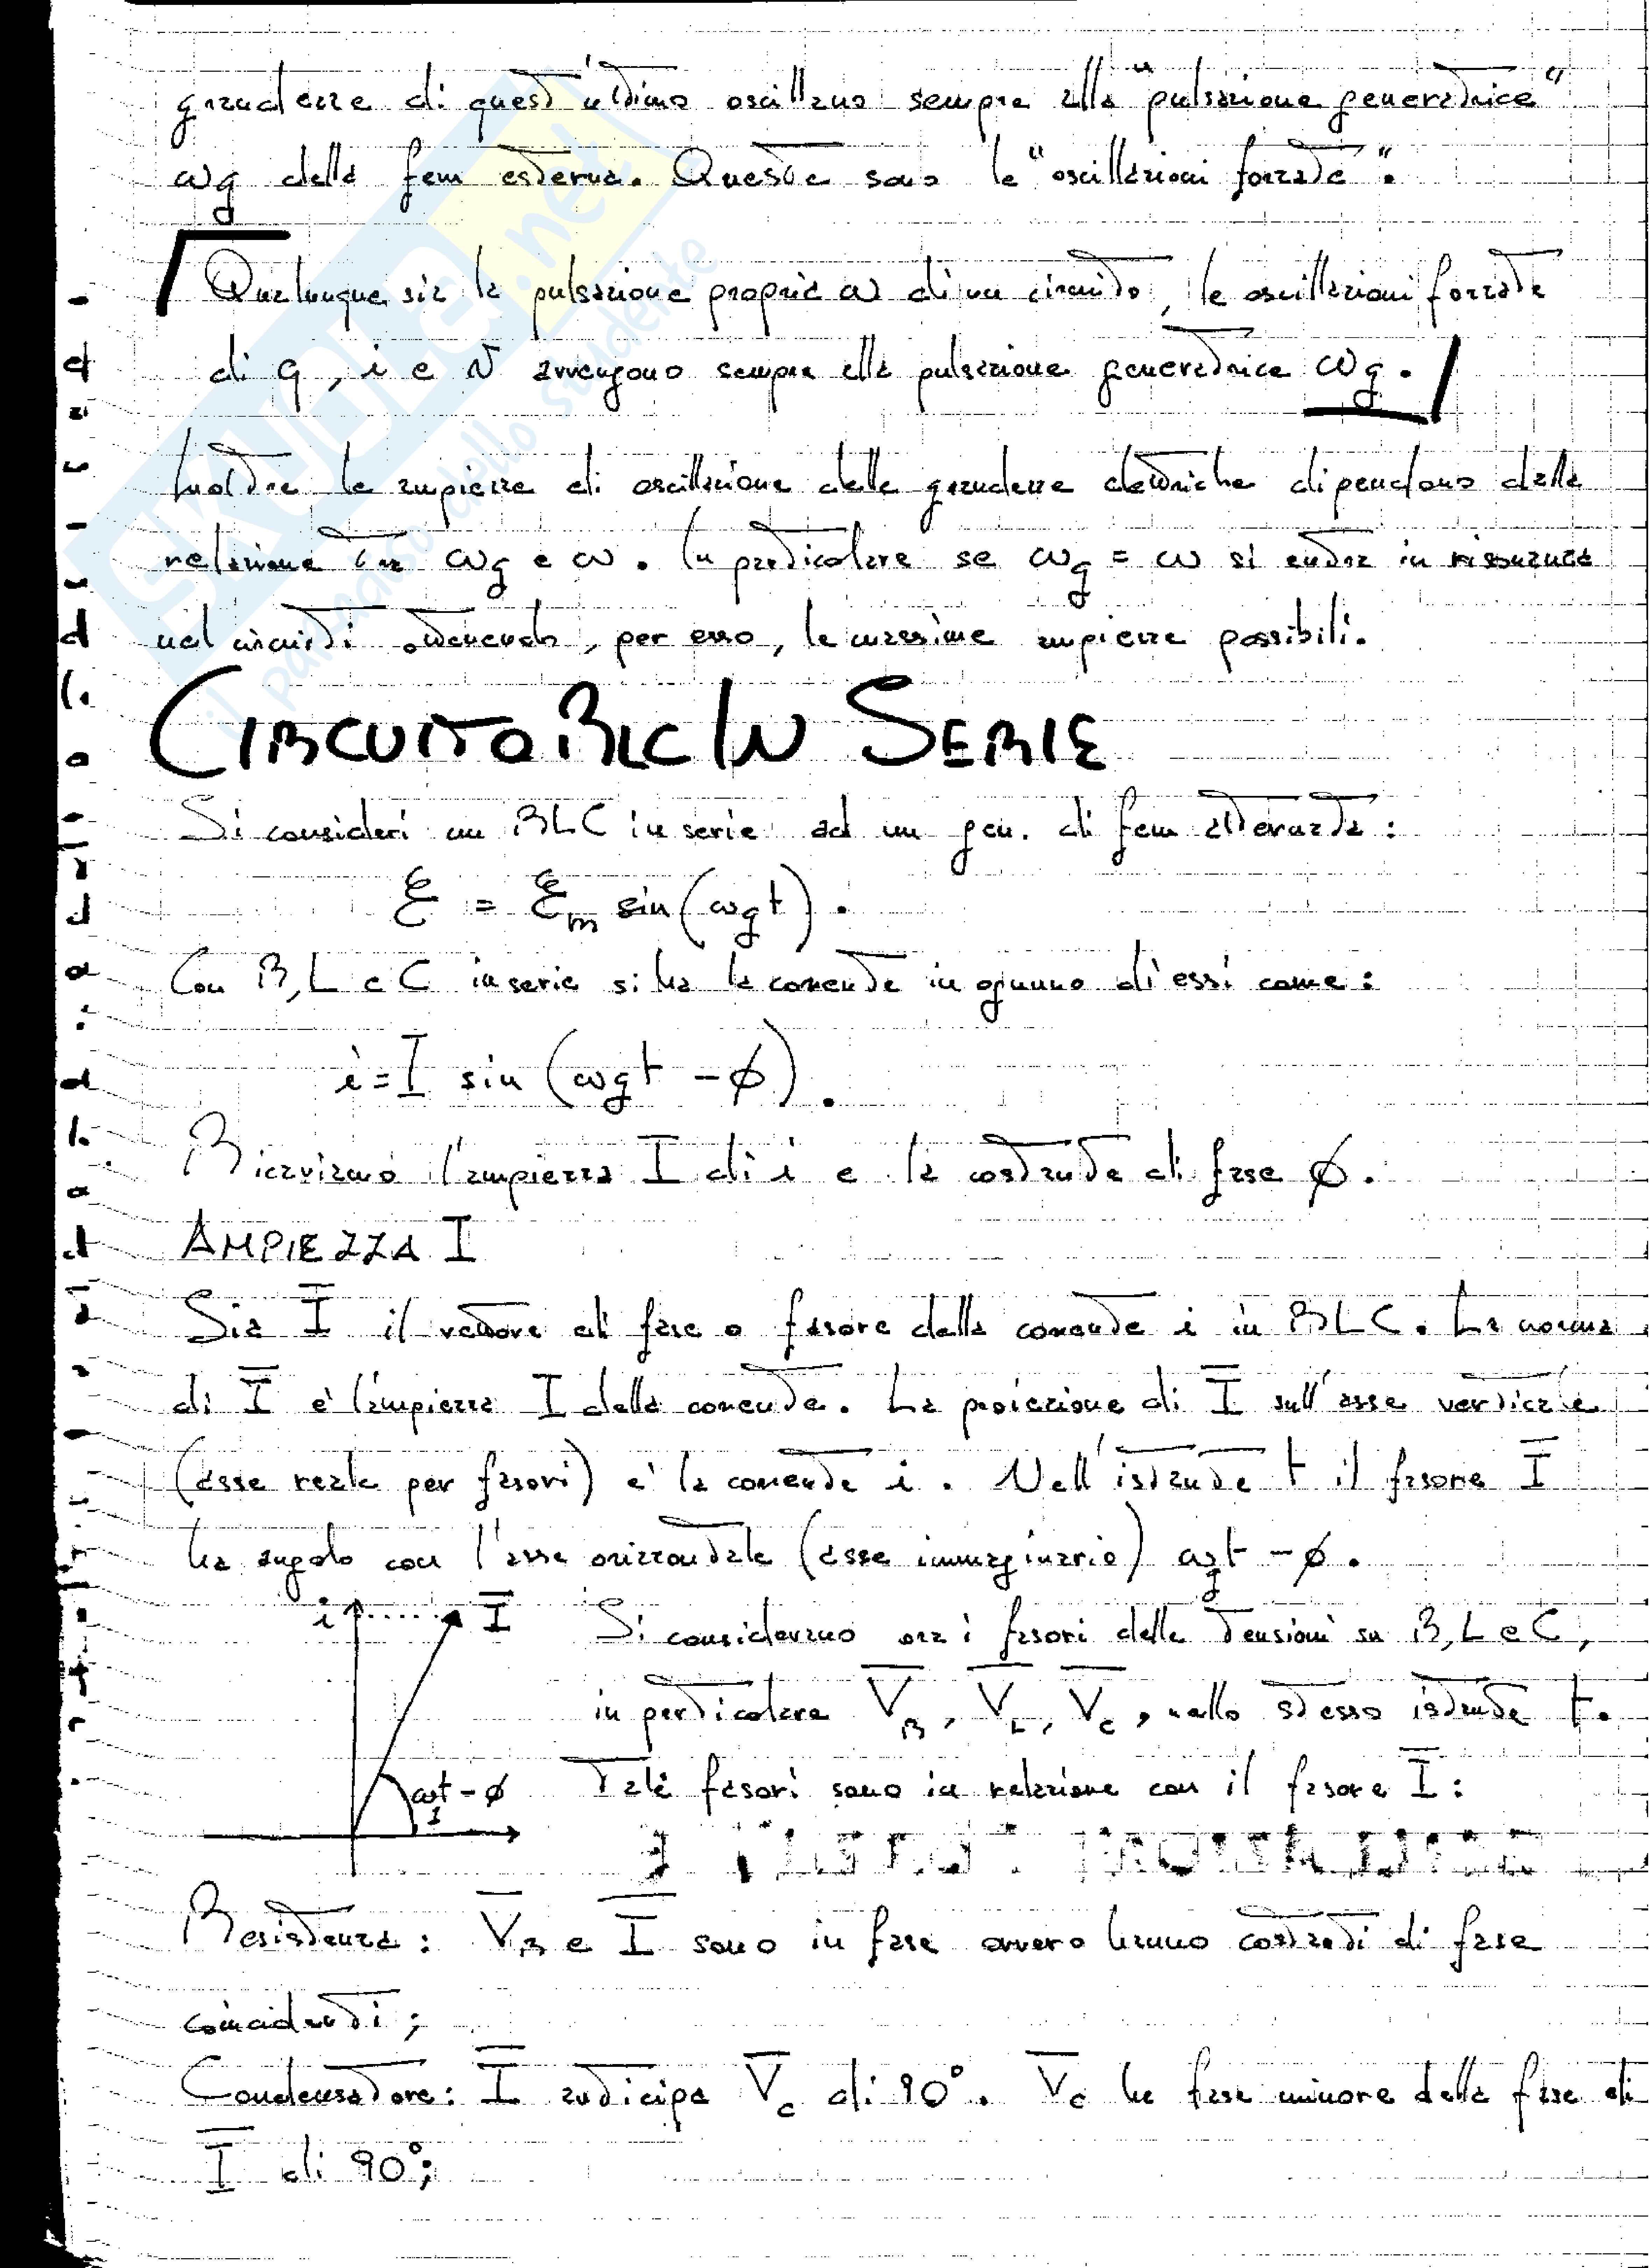 grandezze di quest'ultimo oscillano sempre alla "pulsazione generatrice"
ωg della fem esterna. Queste sono le "oscillazioni forzate".
Qualunque sia la pulsazione propria ω di un circuito, le oscillazioni forzate
di q, i e v avvengono sempre alla pulsazione generatrice ωg.
Inoltre le ampiezze di oscillazione delle grandezze elettriche dipendono dalla
relazione tra ωg e ω. In particolare se ωg = ω si entra in risonanza
nel circuiti ottenendo, per esso, le massime ampiezze possibili.
CIRCUITO RLC IN SERIE
Si consideri un RLC in serie ad un gen. di fem alternata:
ℰ = ℰm sin(ωgt).
Con R, L e C in serie si ha la corrente in ognuno di essi come:
i = I sin(ωgt - ϕ).
Ricaviamo l'ampiezza I di i e la costante di fase ϕ.
AMPIEZZA I
Sia I̅ il vettore di fase o fasore della corrente i in RLC. La norma
di I̅ è l'ampiezza I della corrente. La proiezione di I̅ sull'asse verticale
(asse reale per fasori) è la corrente i. Nell'istante t il fasore I̅
ha angolo con l'asse orizzontale (asse immaginario) ωgt - ϕ.
i I̅
Si considerano ora i fasori delle tensioni su R, L e C,
in particolare V̅R, V̅L, V̅C, nello stesso istante t.
ωgt - ϕ
Tali fasori sono in relazione con il fasore I̅:
Resistenza: V̅R e I̅ sono in fase ovvero hanno costanti di fase
coincidenti;
Condensatore: I̅ anticipa V̅C di 90°. V̅C ha fase minore della fase di
I̅ di 90°;
skuola.net
il paradiso dello studente